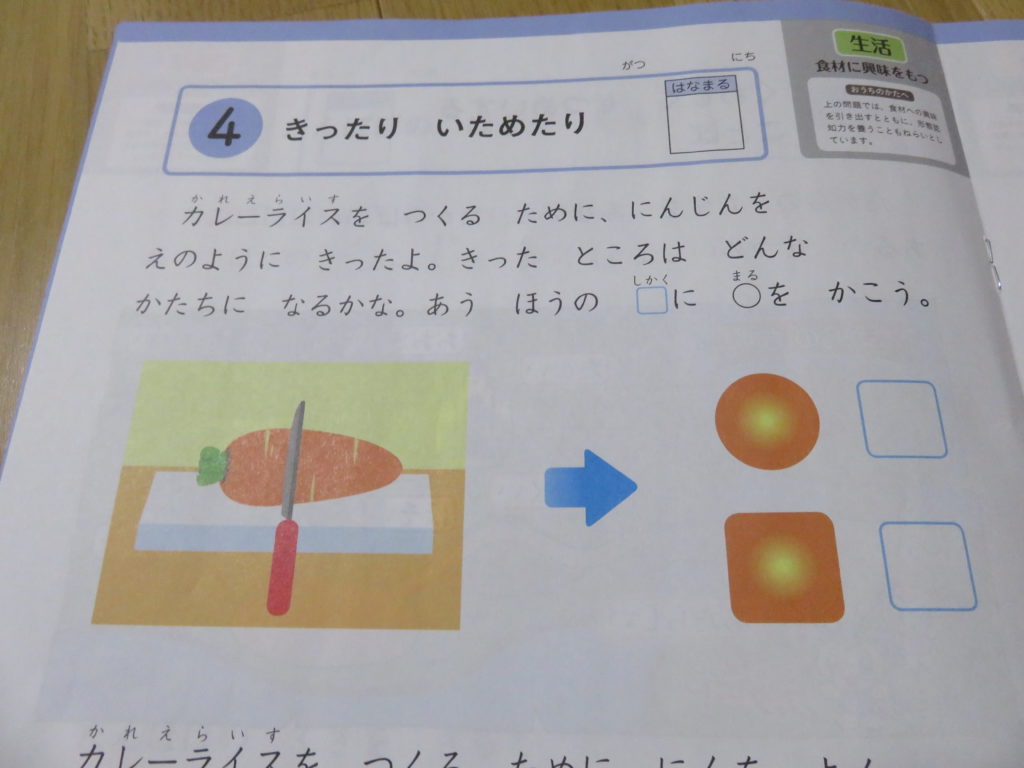 がつ にち
4 きったり いためたり
はなまる
生活
食材に興味をもつ
おうちのかたへ
上の問題では、食材への興味
を引き出すとともに、形態認
知力を養うこともねらいとし
ています。
かれえらいす
カレーライスを つくる ために、にんじんを
えのように きったよ。きった ところは どんな
しかく まる
かたちに なるかな。あう ほうの □に ○を かこう。
かれえらいす
カレーライスを つくる ために、にくを